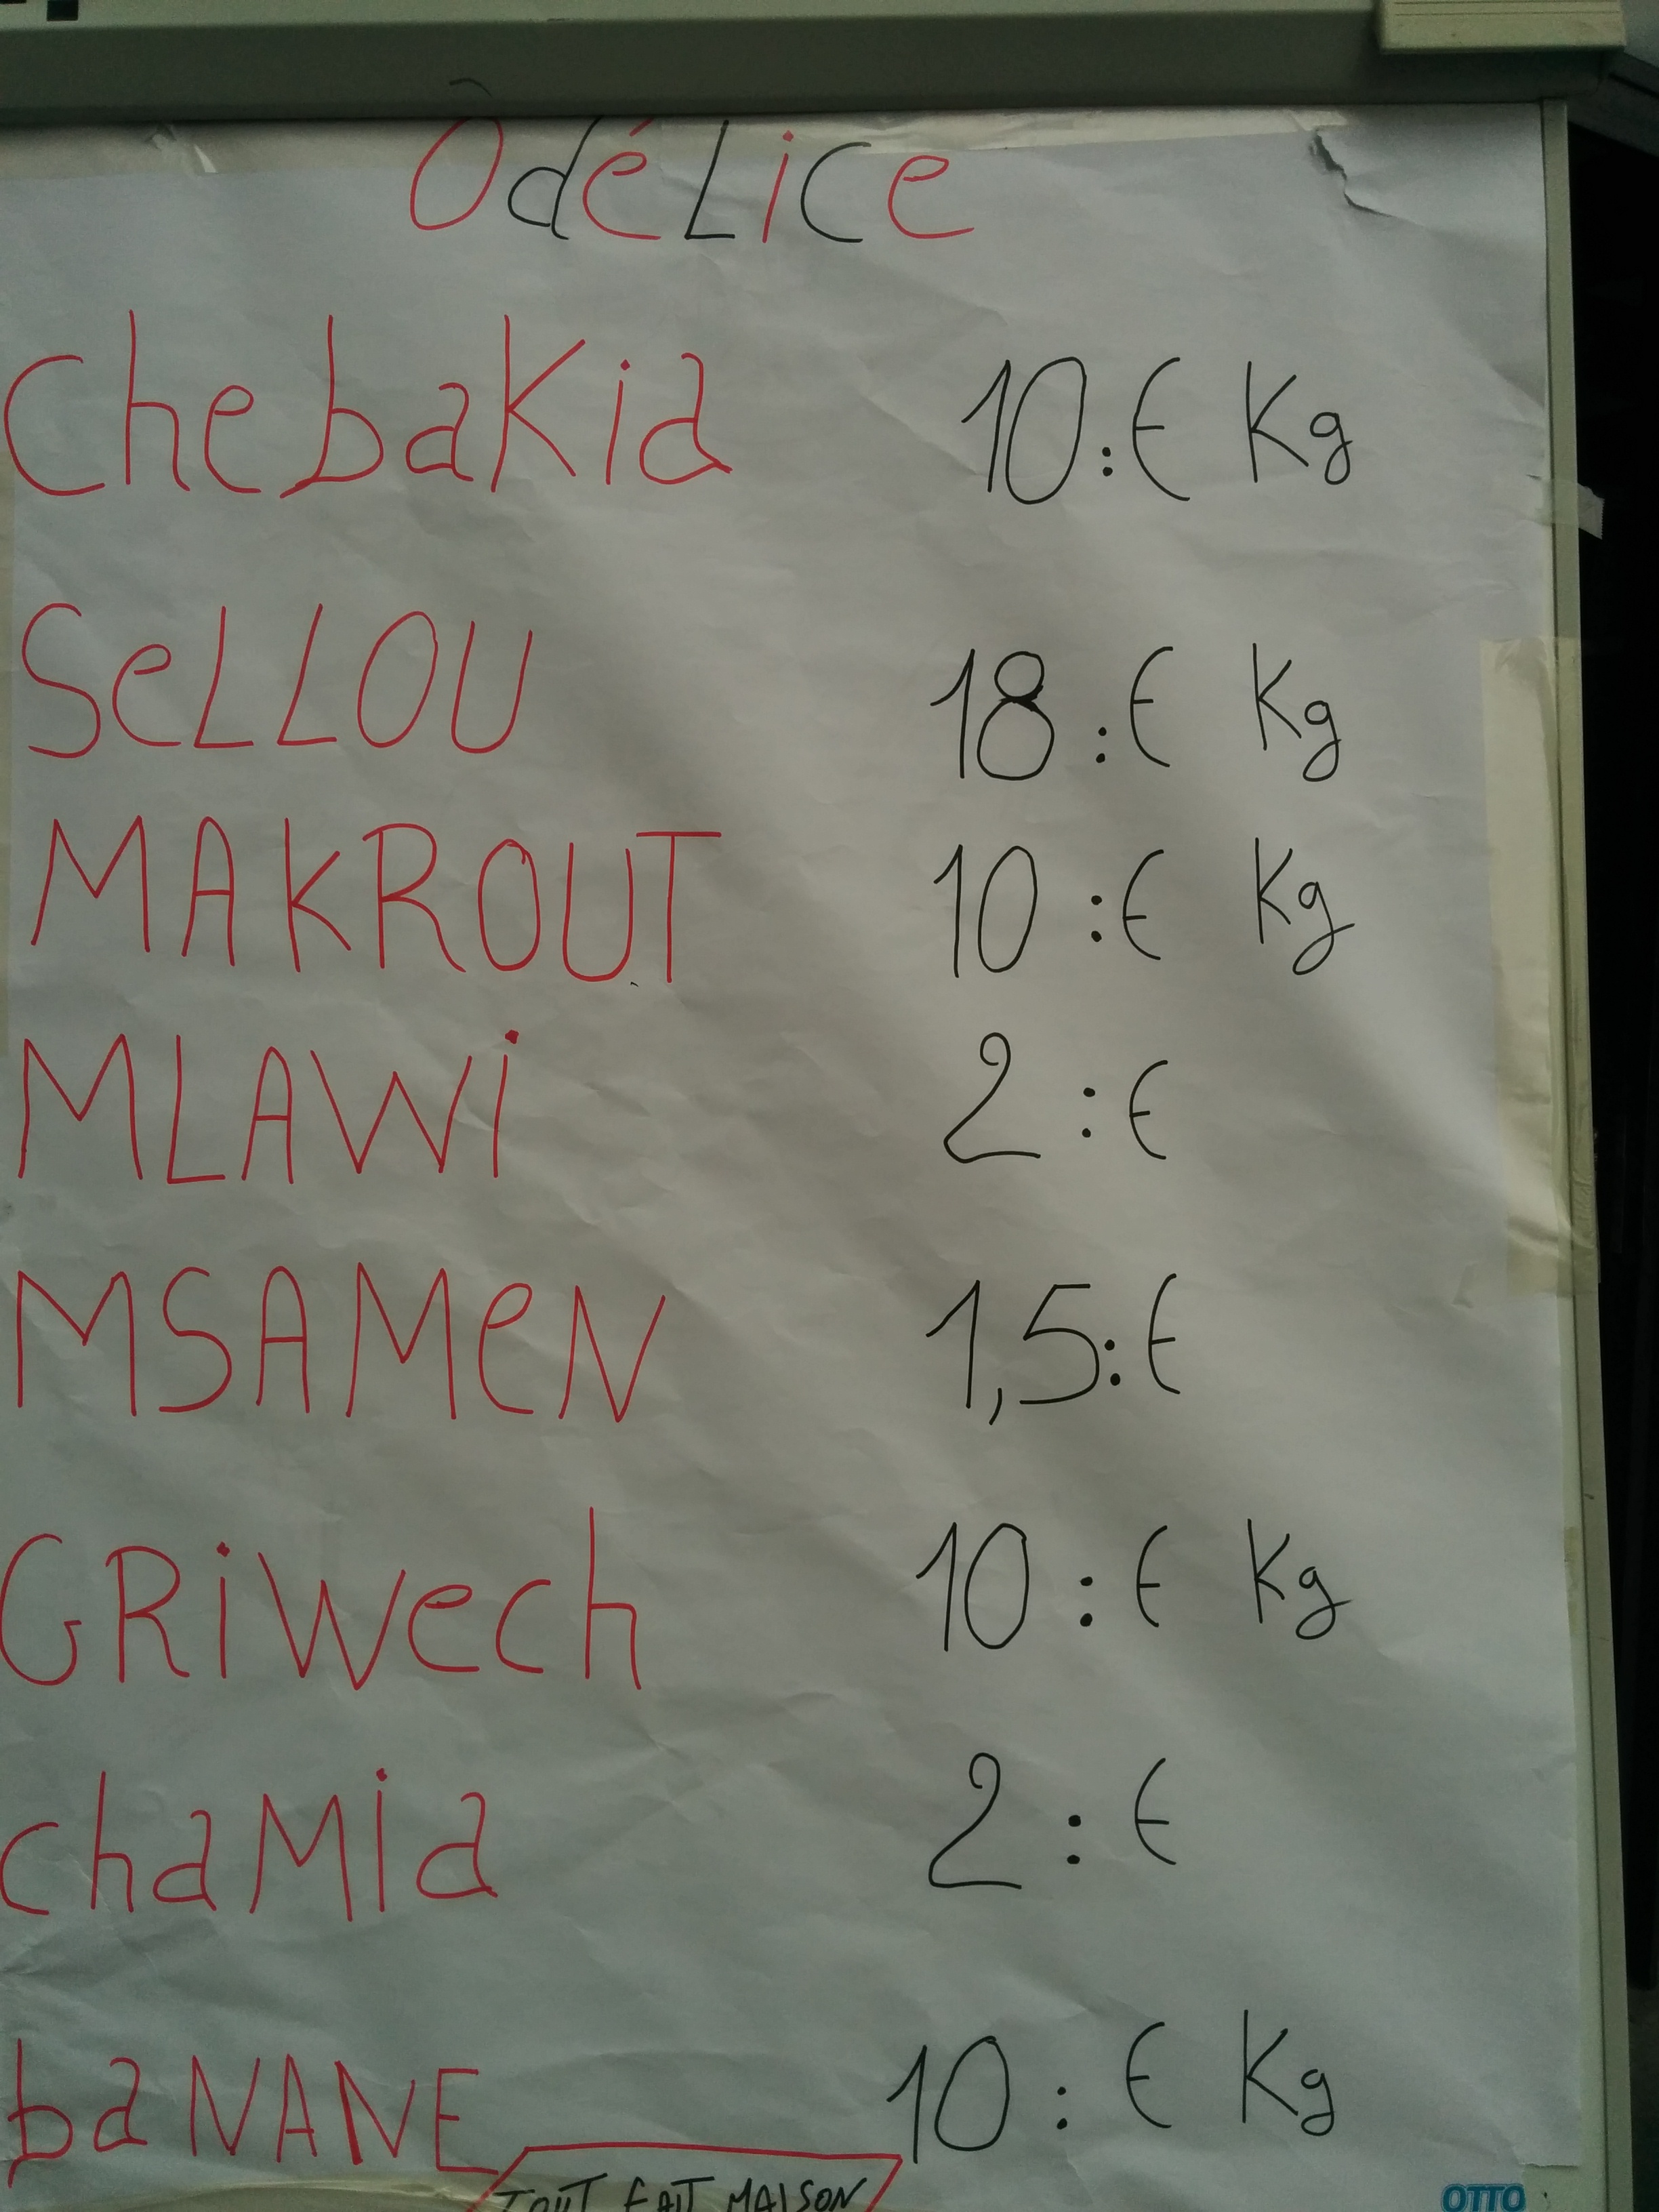 OdéLice
ChebaKia 10:€ Kg
SeLLOU 18:€ Kg
MAKROUT 10:€ Kg
MLAWi 2:€
MSAMeN 1,5:€
GRiWech 10:€ Kg
chaMia 2:€
baNANE 10:€ Kg
TOUT FAIT MAISON
OTTO